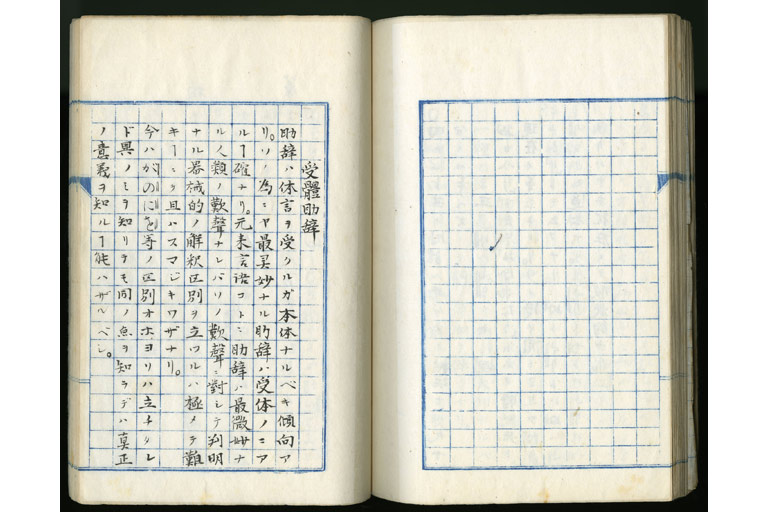 受體助辞
助辞ハ体言ヲ受クルガ本体ナルベキ傾向ア
リ。ソノ為ニヤ最霊妙ナル助辞ハ受体ノニア
ルヿ確ナリ。元来言語コトニ助辞ハ最微妙ナ
ル人類ノ歎聲ナレバソノ歎聲ニ對シテ判明
ナル器械的ノ解釈区別ヲ立ツルハ極メテ難
キヿニシテ且ハスマジキワザナリ。
今ハがのにを等ノ区別オホヨソハ立チタレ
ド異ノミヲ知リテモ同ノ点ヲ知ラデハ真正
ノ意義ヲ知ルヿ能ハザルベシ。